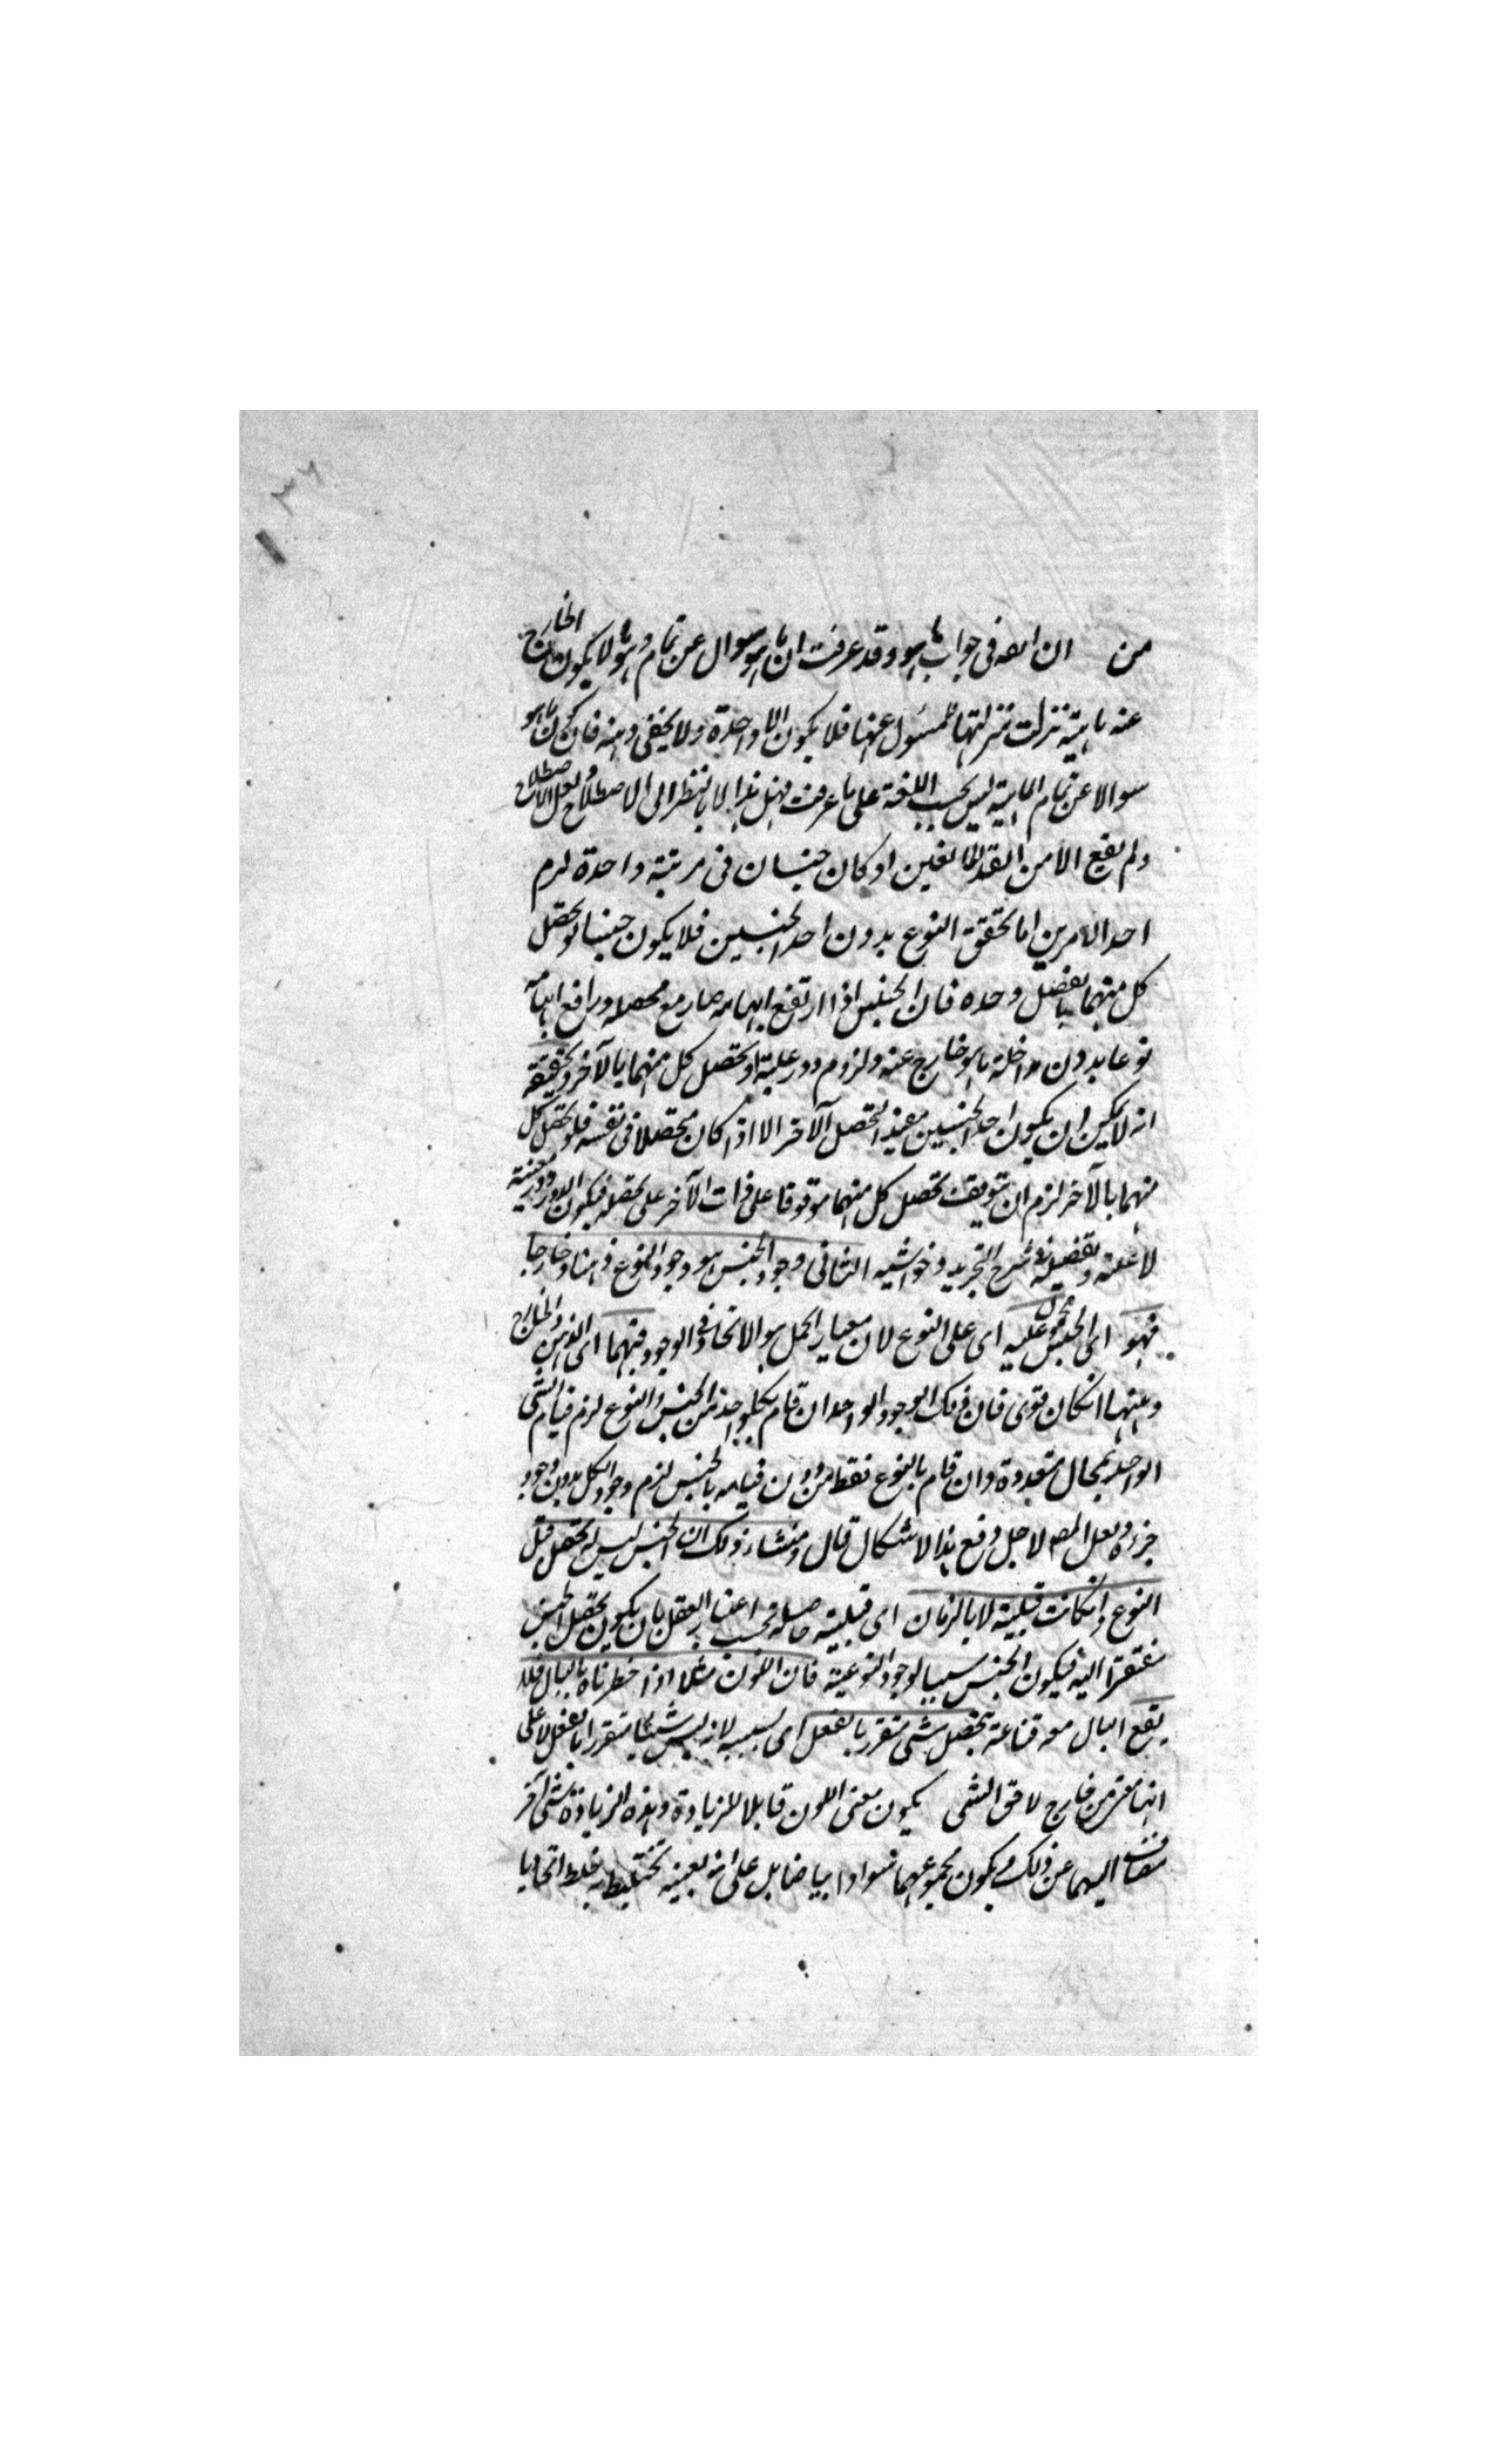 من ان اله فى جواب ما هو وقد عرفت ان ما هو سوال عن تمام وما هو لا يكون الخارج
عنه ماهية نزلت منزلتها المسئول عنها فلا يكون الا واحدة ولا يخفى وهنه فان كون ما هو
سوالا عن تمام الماهية ليس بحسب اللغة على ما عرفت فهل هذا الا بالنظر الى الاصطلاح ولعل الاصطلاح
ولم يقع الا من القدر لو كان جنسان فى مرتبة واحدة لزم
احد الامرين اما تحقق النوع بدون احد الجنسين فلا يكون جنسا لو تحصل
كل منهما بالفصل وحده فان الجنس اذا ارتفع ابهامه صار مع محصله ورافع ابهامه
نوعا بدون مداخلة ما هو خارج عنه ولزوم دور علية لو تحصل كل منهما بالآخر وتحقيقه
انه لا يمكن ان يكون احد الجنسين مفيد التحصل الآخر الا اذا كان متحصلا فى نفسه فلو تحصل كل
منهما بالآخر لزم ان يتوقف تحصل كل منهما موقوفا على ذات الآخر على تحصله فيكون الدور دور معية
لا علية وتفصيله فى شرح التجريد وحواشيه الثانى وجود الجنس هو وجود النوع ذهنا وخارجا
فهو اى الجنس محمول عليه اى على النوع لان معيار الحمل هو الاتحاد فى الوجود فيهما اى الذهن والخارج
وههنا اشكال قوى فان ذلك الوجود الواحد ان قام بكل واحد من الجنس والنوع لزم قيام الشى
الواحد بمحال متعددة وان قام بالنوع فقط من دون قيامه بالجنس لزم وجود الكل بدون وجود
جزءه ولعل المصه لاجل وقع هذا الاشكال قال ومنشاء ذلك ان الجنس ليس له تحصل قبل
النوع وان كانت قبلية لا بالزمان اى قبلية حاصلة بحسب اعتبار العقل بان يكون تحصل الجنس
مفتقرا اليه فيكون الجنس سببا لوجود النوعية فان اللون مثلا اذا خطرناه بالبال فلا
يقع البال معه قناعة بتحصل شى متقرر بالفعل اى بسببه لانه ليس شيئا متقررا بالفعل لا على
انها من خارج لاحق الشى يكون معنى اللون قابلا للزيادة وهذه الزيادة شى آخر
مضاف اليهما عن ذلك ويكون مجموعهما سوادا بياضا بل على انه بعينه تختلط به خلط اتحاديا